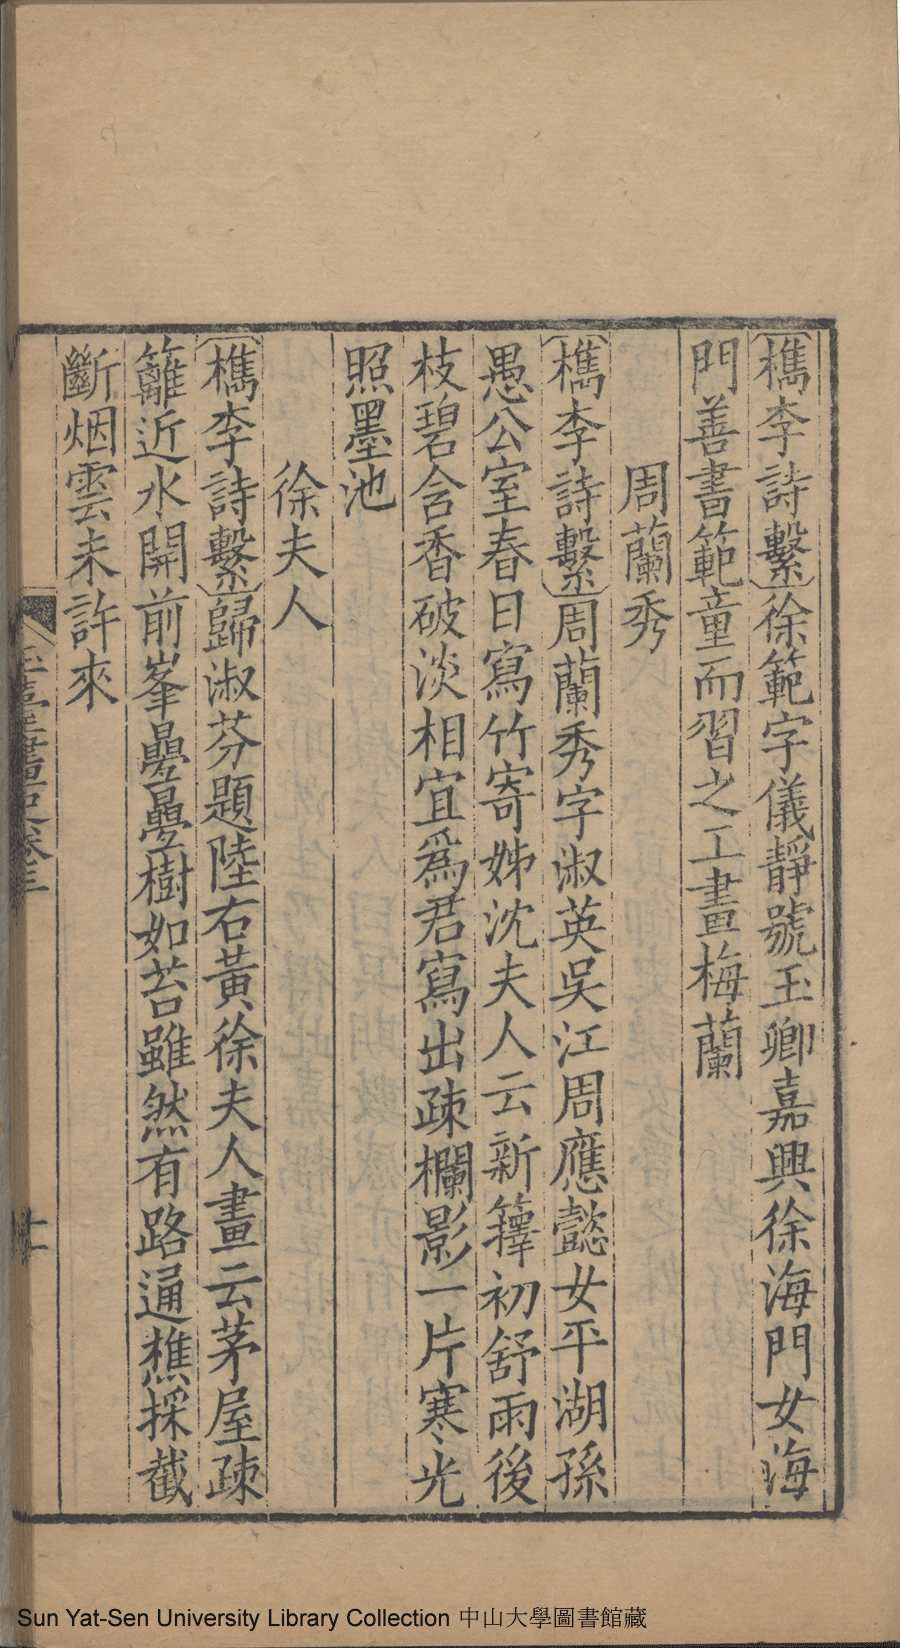 檇李詩繫徐範字儀靜號玉卿嘉興徐海門女海
門善書範童而習之工畫梅蘭
周蘭秀
檇李詩繫周蘭秀字淑英吳江周應懿女平湖孫
愚公室春日寫竹寄姊沈夫人云新籜初舒雨後
枝碧含香破淡相宜爲君寫出疎欄影一片寒光
照墨池
徐夫人
檇李詩繫歸淑芬題陸右黃徐夫人畫云茅屋疎
籬近水開前峯曡曡樹如苔雖然有路通樵採截
斷烟雲未許來
玉臺畫史卷三
Sun Yat-Sen University Library Collection 中山大學圖書館藏